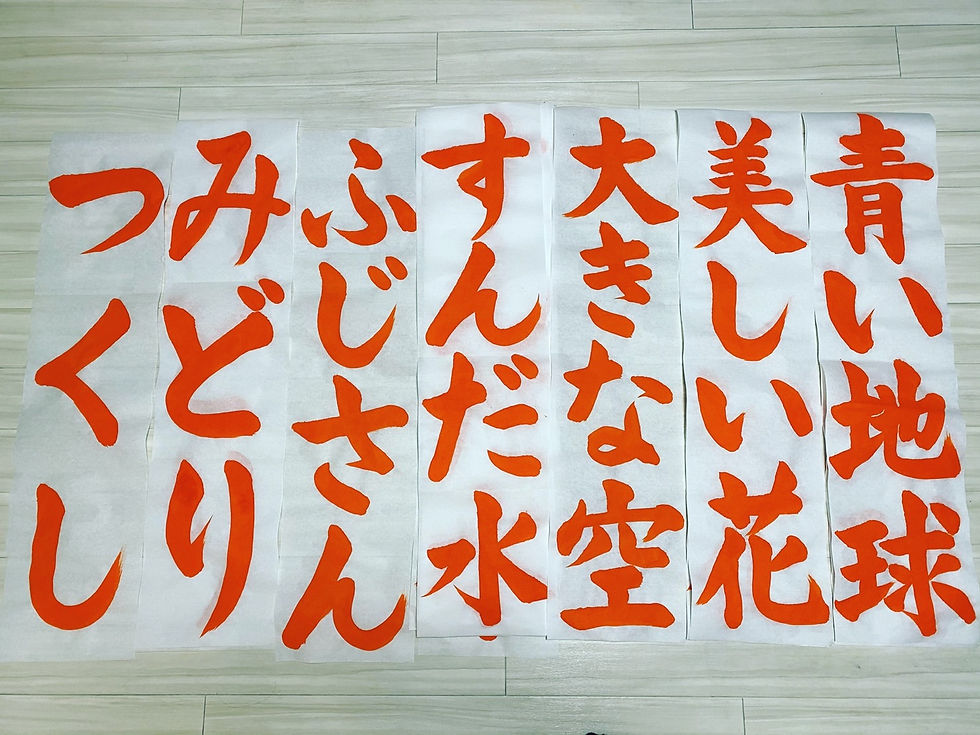 青い地球
美しい花
大きな空
すんだ水
ふじさん
みどり
つくし